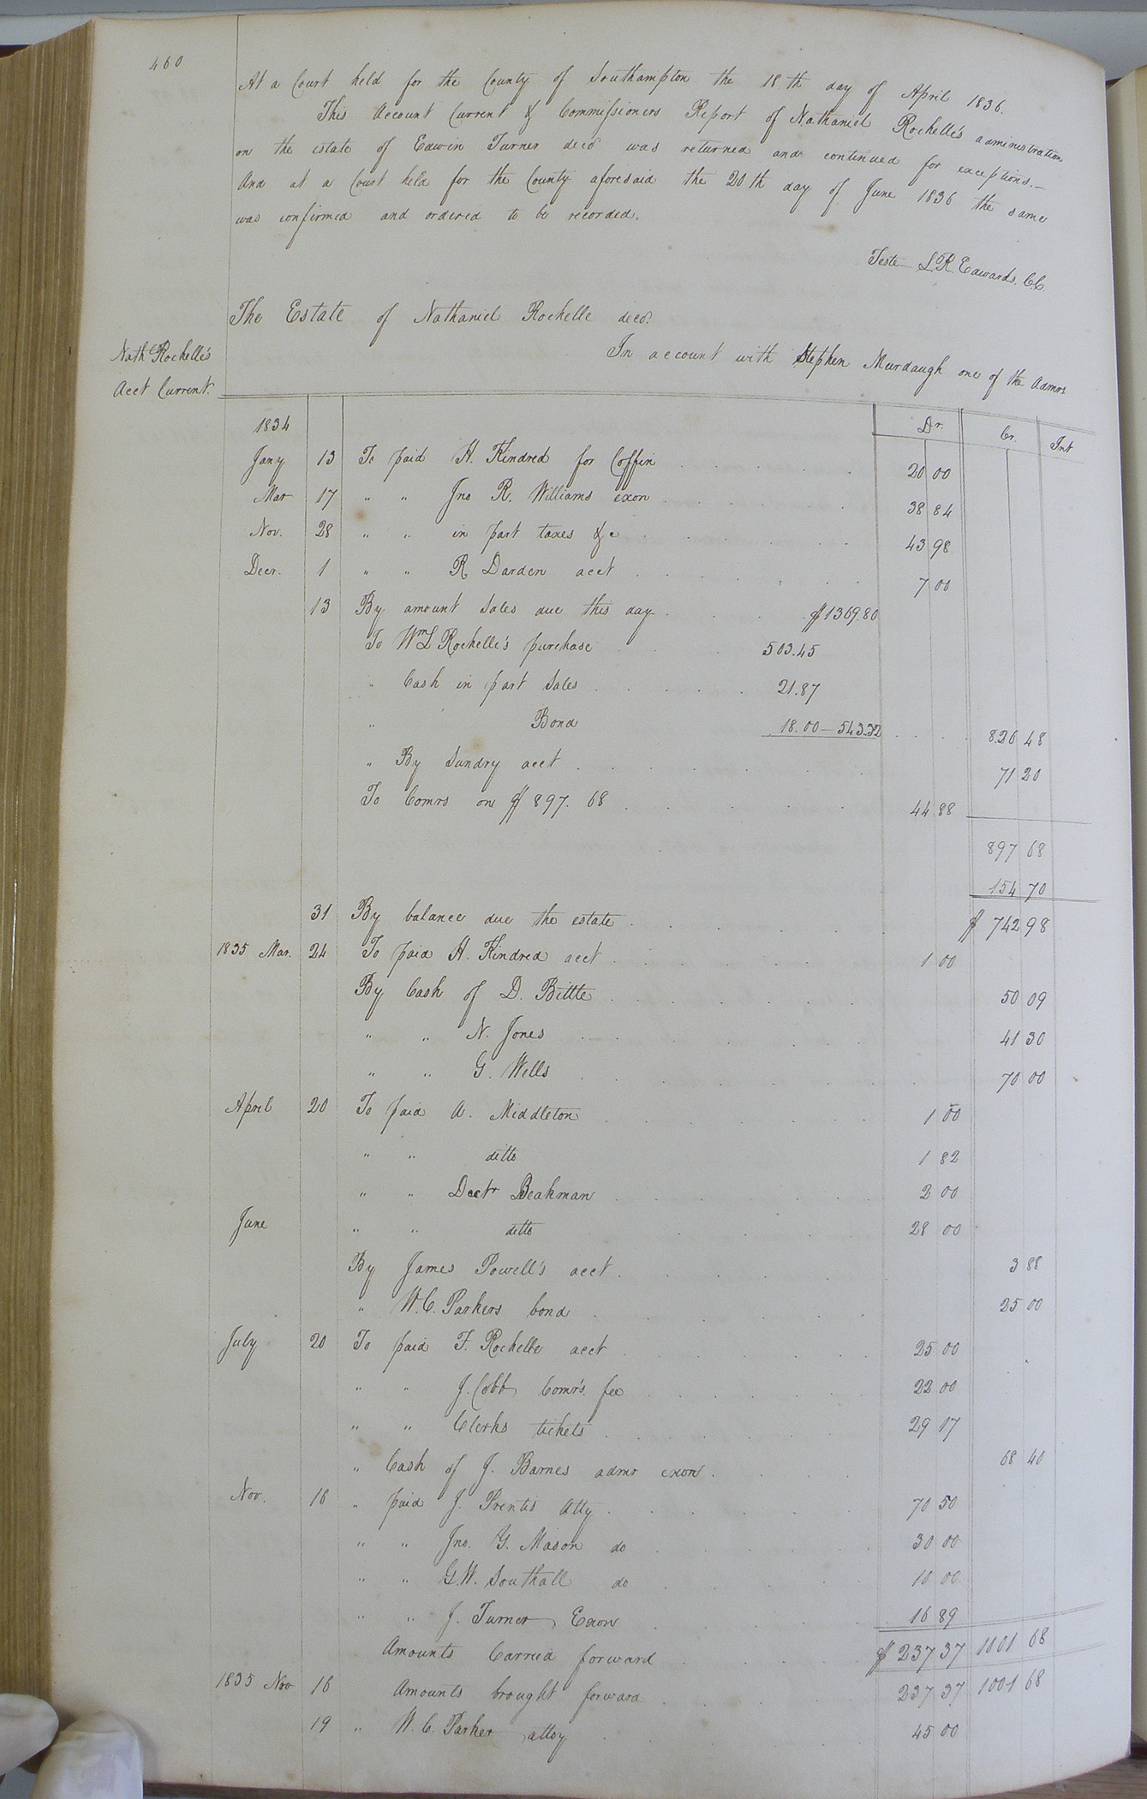 460
At a Court held for the County of Southampton the 18th day of April 1836.
This Account Current & Commissioners Report of Nathaniel Rochelle's administration
on the estate of Edwin Turner decd was returned and continued for exceptions.—
And at a Court held for the County aforesaid the 20th day of June 1836 the same
was confirmed and ordered to be recorded.
Teste L R Edwards. CC
The Estate of Nathaniel Rochelle decd.
In account with Stephen Murdaugh one of the Admrs
Nathl Rochelle's
Acct Current.
1834 Dr. Cr. Int
Jany 13 To paid H. Kindred for Coffin 20 00
Mar 17 " " Jno R. Williams exon 38 84
Nov. 28 " " in part taxes &c 43 98
Decr. 1 " " R Darden acct 7 00
13 By amount Sales due this day $1369.80
To Wm L Rochelle's purchase 503.45
" Cash in part Sales 21.87
" Bond 18.00 — 543.32 826 48
" By Sundry acct 71 20
To Comrs on $897. 68 44 88
897 68
154 70
31 By balance due the estate $ 742 98
1835 Mar. 24 To paid H. Kindred acct 1 00
By Cash of D. Bittle 50 09
" " N. Jones 41 30
" " G. Wells 70 00
April 20 To paid A. Middleton 1 00
" " ditto 1 82
" " Doctr Beakman 2 00
June " " ditto 28 00
By James Powell's acct. 3 88
" W.C. Parkers bond 25 00
July 20 To paid F. Rochelle acct 25 00
" " J. Cobb, Comr's. fee 22 00
" " Clerks tickets 29 17
" Cash of J. Barnes admr exon. 68 40
Nov. 16 " paid J. Prentis Atty 70 50
" " Jno. Y. Mason do 30 00
" " G.W. Southall do 10 00
" " J. Turner, Exon 16 89
Amounts Carried forward $ 237 37 1001 68
1835 Nov 16 Amounts brought forward 237 37 1001 68
19 " W. C. Parker, attoy 45 00